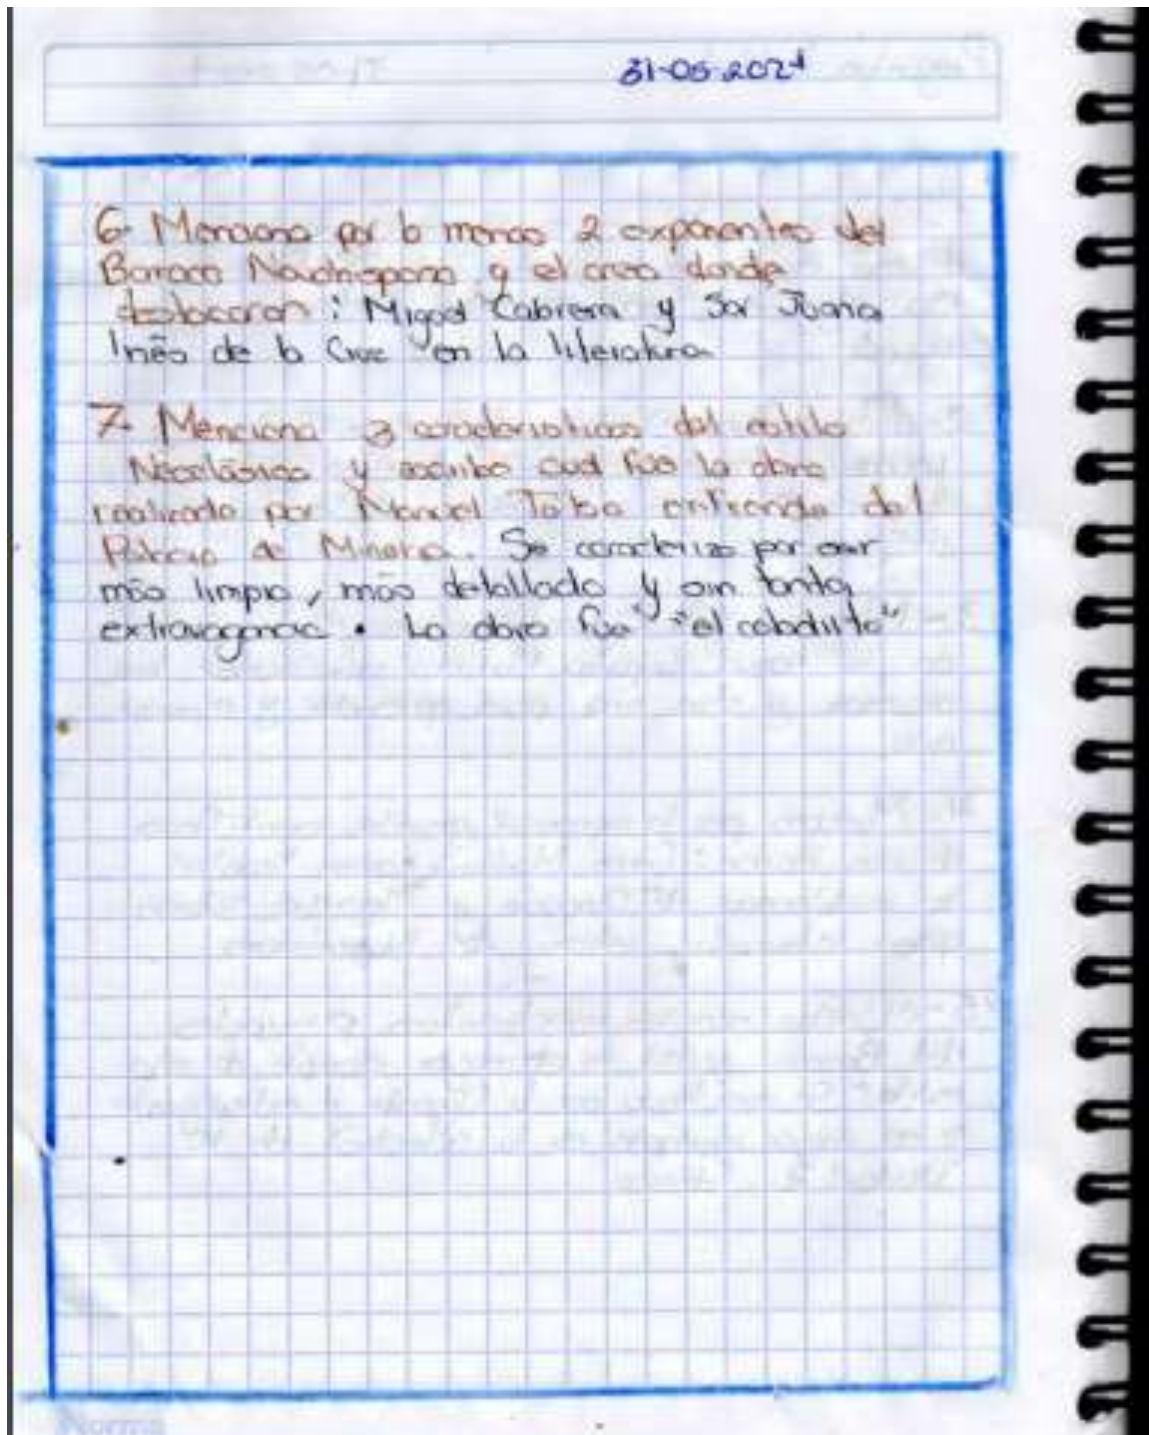 31-05-2021
6- Menciona por lo menos 2 exponentes del
Barroco Novohispano y el area donde
destacaron : Miguel Cabrera y Sor Juana
Inés de la Cruz en la literatura
7- Menciona 3 caracteristicas del estilo
Neoclásico y escribe cual fue la obra
realizada por Manuel Tolsa enfrende del
Palacio de Mineria. Se caracterizo por ser
más limpio, más detallado y sin tanta
extravagancia. La obra fue "el caballito"
Norma